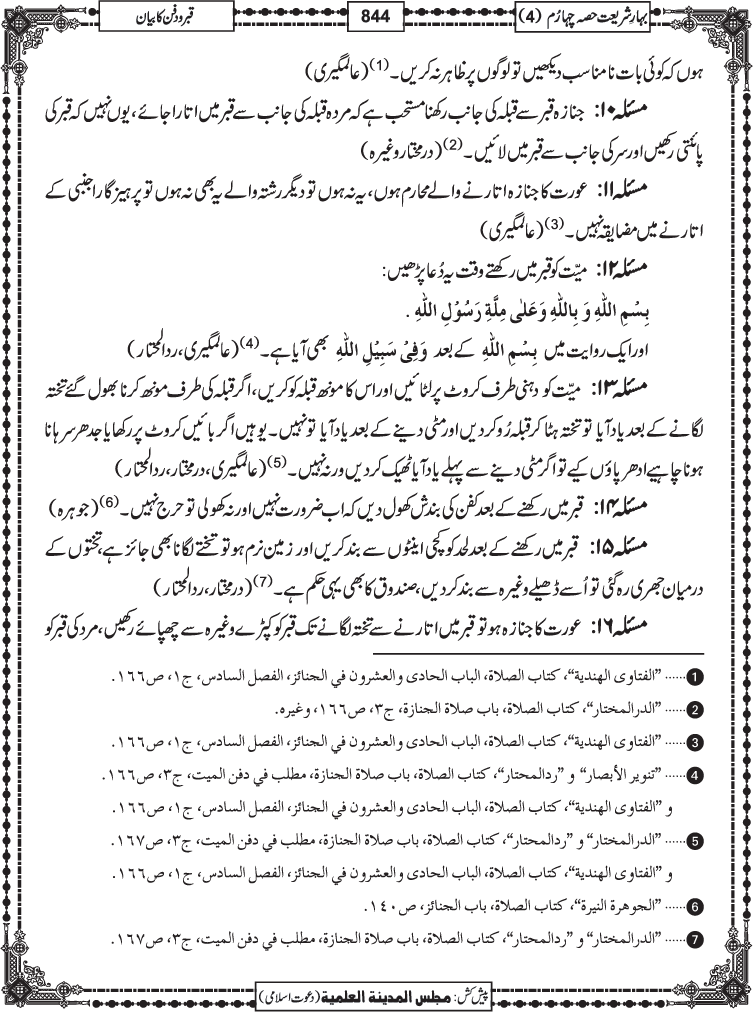 بہارِ شریعت حصہ چہارم (4)
844
قبر و دفن کا بیان
ہوں کہ کوئی بات نامناسب دیکھیں تو لوگوں پر ظاہر نہ کریں۔ (1) (عالمگیری)
مسئلہ ۱۰: جنازہ قبر سے قبلہ کی جانب رکھنا مستحب ہے کہ مردہ قبلہ کی جانب سے قبر میں اتارا جائے، یوں نہیں کہ قبر کی
پائنتی رکھیں اور سر کی جانب سے قبر میں لائیں۔ (2) (درمختار وغیرہ)
مسئلہ ۱۱: عورت کا جنازہ اتارنے والے محارم ہوں، یہ نہ ہوں تو دیگر رشتہ والے یہ بھی نہ ہوں تو پرہیزگار اجنبی کے
اتارنے میں مضایقہ نہیں۔ (3) (عالمگیری)
مسئلہ ۱۲: میّت کو قبر میں رکھتے وقت یہ دُعا پڑھیں:
بِسْمِ اللهِ وَ بِاللهِ وَعَلٰى مِلَّةِ رَسُوْلِ اللهِ .
اور ایک روایت میں بِسْمِ اللهِ کے بعد وَفِیْ سَبِیْلِ اللهِ بھی آیا ہے۔ (4) (عالمگیری، ردالمحتار)
مسئلہ ۱۳: میّت کو دہنی طرف کروٹ پر لٹائیں اور اس کا مونھ قبلہ کو کریں، اگر قبلہ کی طرف مونھ کرنا بھول گئے تختہ
لگانے کے بعد یاد آیا تو تختہ ہٹا کر قبلہ رُو کر دیں اور مٹی دینے کے بعد یاد آیا تو نہیں۔ یوہیں اگر بائیں کروٹ پر رکھا یا جدھر سرہانا
ہونا چاہیے ادھر پاؤں کیے تو اگر مٹی دینے سے پہلے یاد آیا ٹھیک کر دیں ورنہ نہیں۔ (5) (عالمگیری، درمختار، ردالمحتار)
مسئلہ ۱۴: قبر میں رکھنے کے بعد کفن کی بندش کھول دیں کہ اب ضرورت نہیں اور نہ کھولی تو حرج نہیں۔ (6) (جوہرہ)
مسئلہ ۱۵: قبر میں رکھنے کے بعد لحد کو کچی اینٹوں سے بند کریں اور زمین نرم ہو تو تختے لگانا بھی جائز ہے، تختوں کے
درمیان جھری رہ گئی تو اُسے ڈھیلے وغیرہ سے بند کر دیں، صندوق کا بھی یہی حکم ہے۔ (7) (درمختار، ردالمحتار)
مسئلہ ۱۶: عورت کا جنازہ ہو تو قبر میں اتارنے سے تختہ لگانے تک قبر کو کپڑے وغیرہ سے چھپائے رکھیں، مرد کی قبر کو
1 ...... "الفتاوى الهندية"، كتاب الصلاة، الباب الحادى والعشرون في الجنائز، الفصل السادس، ج١، ص١٦٦.
2 ...... "الدرالمختار"، كتاب الصلاة، باب صلاة الجنازة، ج٣، ص١٦٦، وغيره.
3 ...... "الفتاوى الهندية"، كتاب الصلاة، الباب الحادى والعشرون في الجنائز، الفصل السادس، ج١، ص١٦٦.
4 ...... "تنوير الأبصار" و "ردالمحتار"، كتاب الصلاة، باب صلاة الجنازة، مطلب في دفن الميت، ج٣، ص١٦٦.
و "الفتاوى الهندية"، كتاب الصلاة، الباب الحادى والعشرون في الجنائز، الفصل السادس، ج١، ص١٦٦.
5 ...... "الدرالمختار" و "ردالمحتار"، كتاب الصلاة، باب صلاة الجنازة، مطلب في دفن الميت، ج٣، ص١٦٧.
و "الفتاوى الهندية"، كتاب الصلاة، الباب الحادى والعشرون في الجنائز، الفصل السادس، ج١، ص١٦٦.
6 ...... "الجوهرة النيرة"، كتاب الصلاة، باب الجنائز، ص١٤٠.
7 ...... "الدرالمختار" و "ردالمحتار"، كتاب الصلاة، باب صلاة الجنازة، مطلب في دفن الميت، ج٣، ص١٦٧.
پیش کش: مجلس المدينة العلمية (دعوت اسلامی)